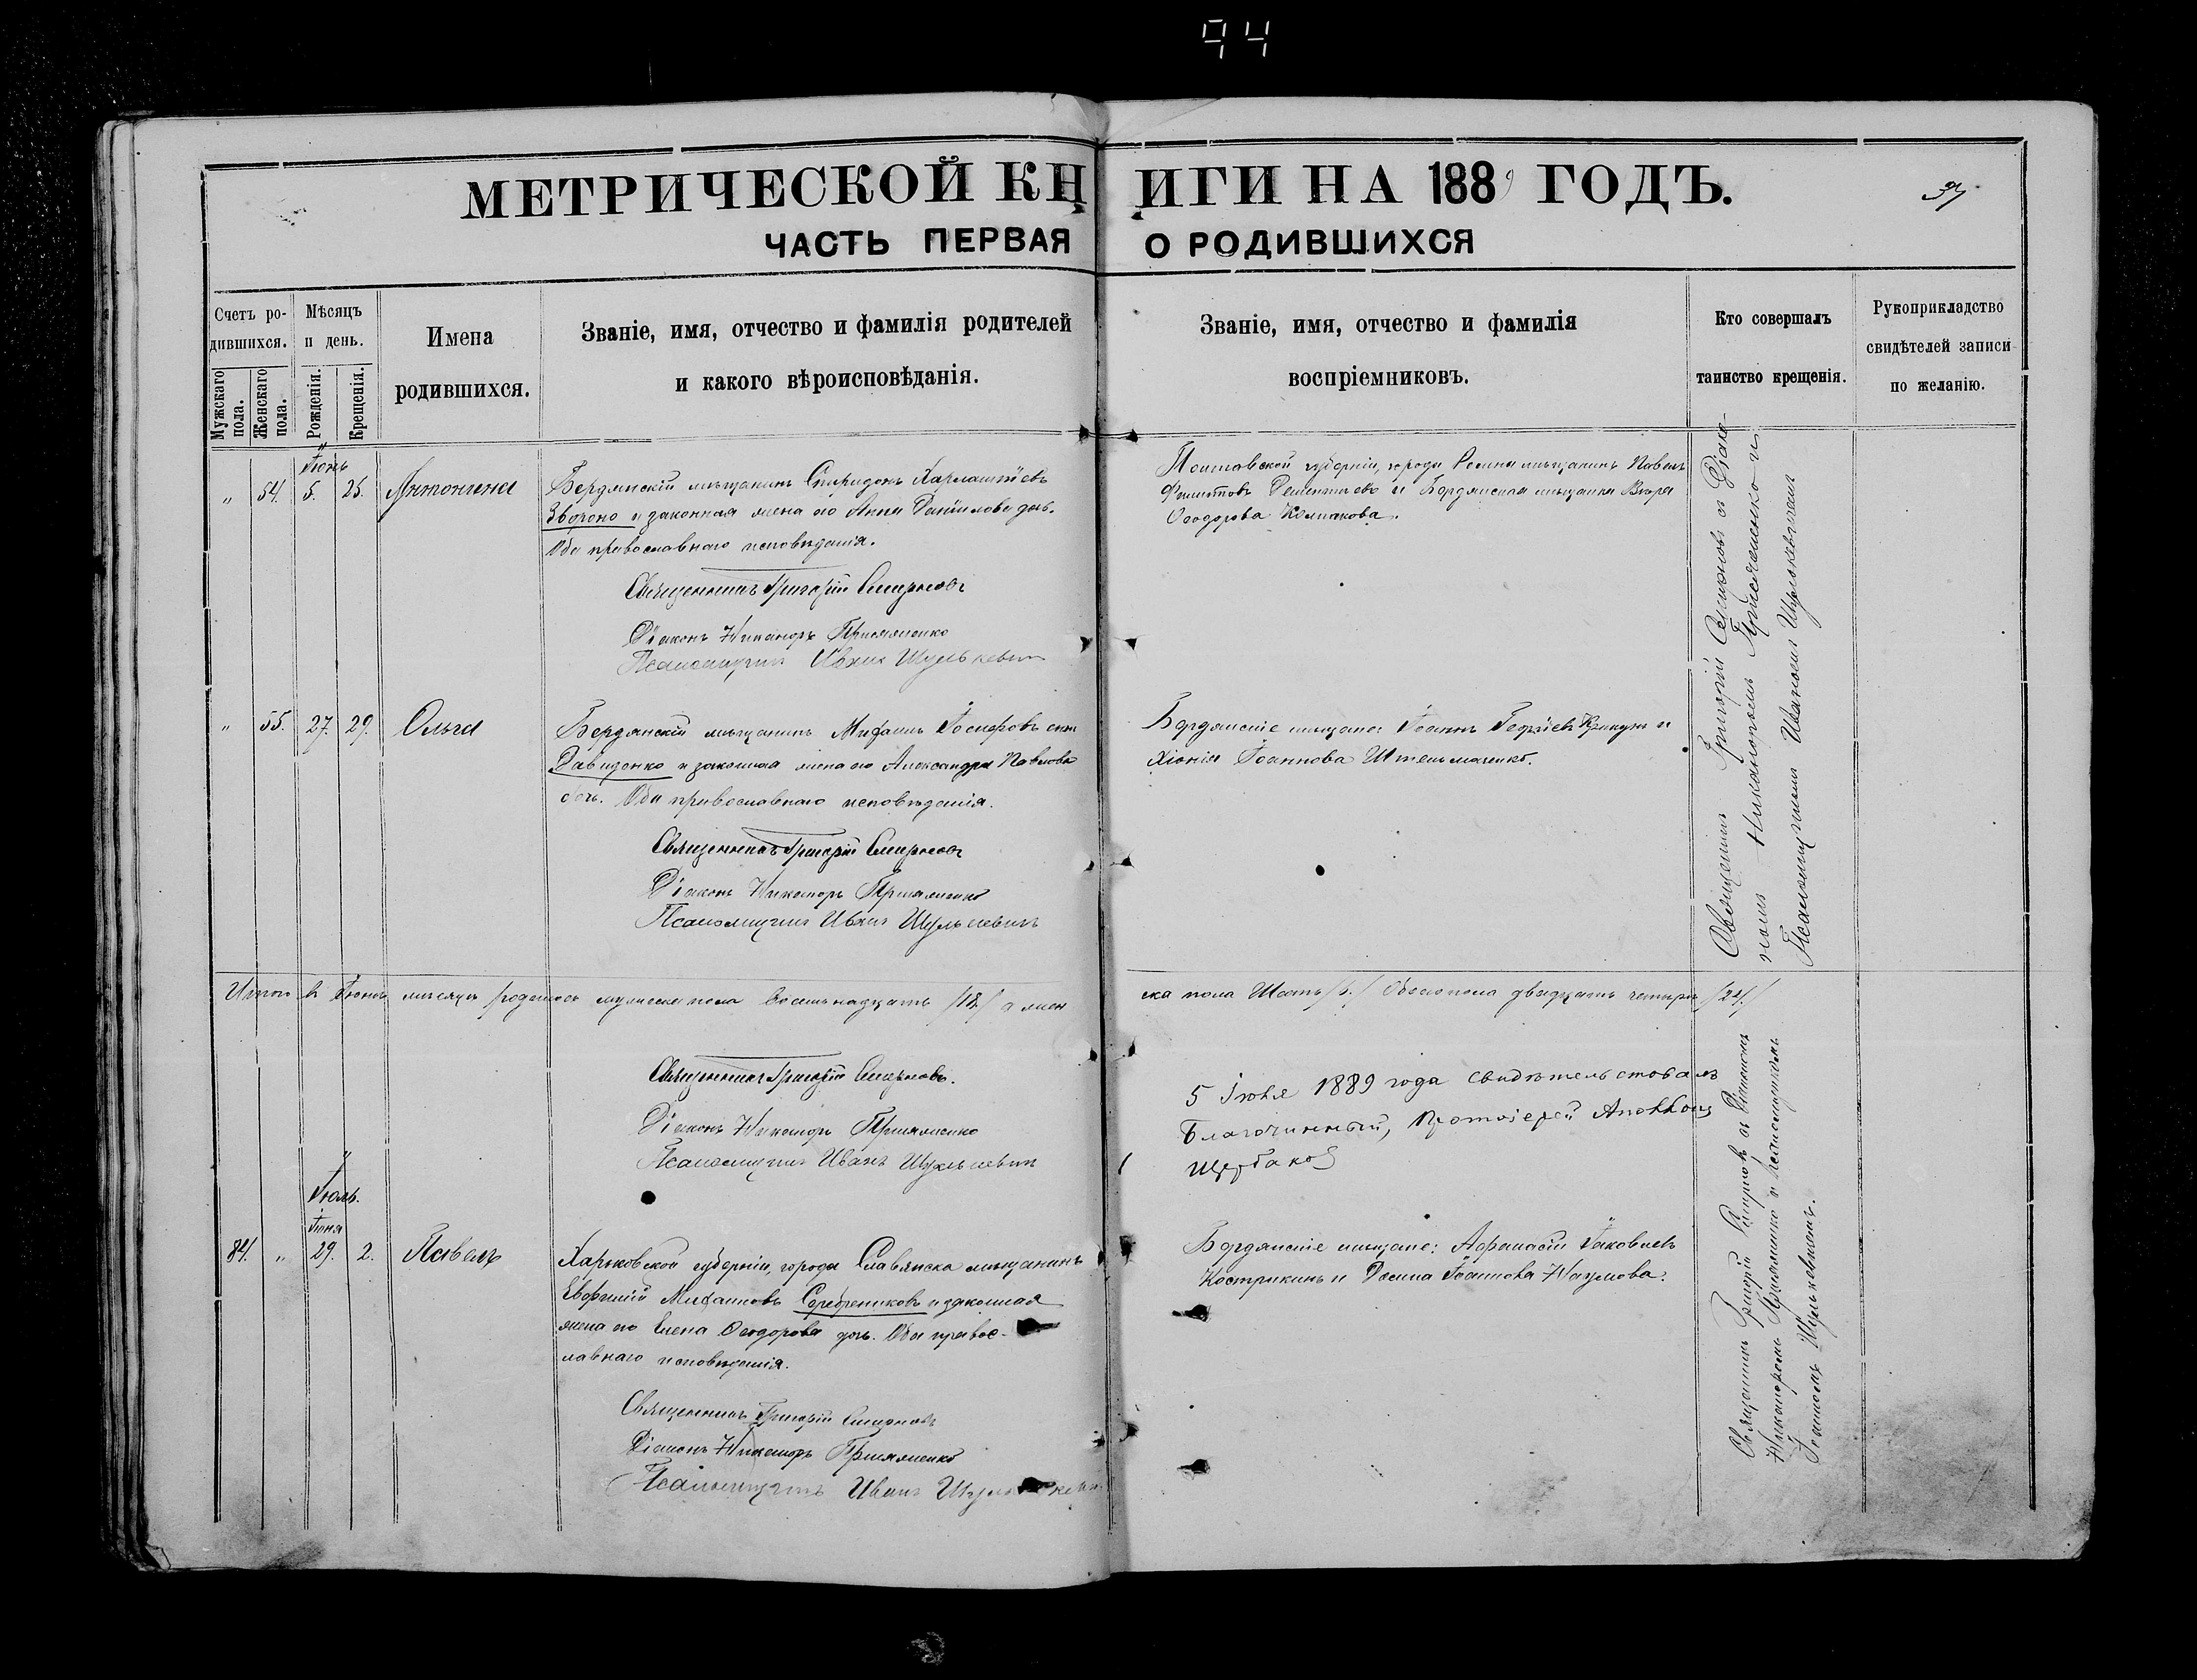 94
МЕТРИЧЕСКОЙ КНИГИ НА 1889 ГОДЪ.
ЧАСТЬ ПЕРВАЯ О РОДИВШИХСЯ
Счетъ родившихся.
Мужскаго пола.
Женскаго пола.
Мѣсяцъ и день.
Рожденія.
Крещенія.
Имена
родившихся.
Званіе, имя, отчество и фамилія родителей
и какого вѣроисповѣданія.
Званіе, имя, отчество и фамилія
воспріемниковъ.
Кто совершалъ
таинство крещенія.
Рукоприкладство
свидѣтелей записи
по желанію.
Іюнь
" 54. 5. 25. Антонина
Бердянскій мѣщанинъ Спиридонъ Харлампіевъ
Звороно и законная жена его Анна Даніилова доч.
Оба православнаго исповѣданія.
Священникъ Григорій Смирновъ
Діаконъ Никаноръ Присяженко
Псаломщикъ Иванъ Шулькевичъ
Полтавской губерніи, города Ромна мѣщанинъ Павелъ
Дементьевъ и Бердянская мѣщанка Вѣра
Ѳеодорова Колпакова.
Священникъ Григорій Смирновъ съ Діако-
номъ Никаноромъ Присяженко и
Псаломщикомъ Иваномъ Шулькевичемъ
" 55. 27. 29. Ольга
Бердянскій мѣщанинъ Михаилъ Іосифовъ сынъ
Давиденко и законная жена его Александра Павлова
доч. Оба православнаго исповѣданія.
Священникъ Григорій Смирновъ
Діаконъ Никаноръ Присяженко
Псаломщикъ Иванъ Шулькевичъ
Бердянскіе мѣщане: Іоаннъ Георгіевъ и
Хіонія Іоаннова
Итого въ Іюнѣ мѣсяцѣ родилось мужеска пола восемнадцать /18./ а жен
ска пола Шесть /6./ Обоего пола двадцать четыре /24./
Священникъ Григорій Смирновъ.
Діаконъ Никаноръ Присяженко
Псаломщикъ Иванъ Шулькевичъ
5 Іюля 1889 года свидѣтельствовалъ
Благочинный, Протоіерей Аполлон
Щербаков
Іюль.
Іюня
84. " 29. 2. Павелъ
Харьковской губерніи, города Славянска мѣщанинъ
Евфимій Михаиловъ Серебрениковъ и законная
жена его Елена Ѳеодорова доч. Оба правос-
лавнаго исповѣданія.
Священникъ Григорій Смирновъ
Діаконъ Никаноръ Присяженко
Псаломщикъ Иванъ Шулькевичъ
Бердянскіе мѣщане: Афанасій Іаковлевъ
Кострикинъ и Іоаннова Наумова.
Священникъ Григорій Смирновъ съ Діакономъ
Никаноромъ Присяженко и Псаломщикомъ
Іоанномъ Шулькевичемъ.